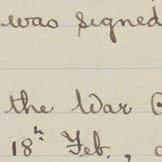 was signed
the War
18th Feb.,